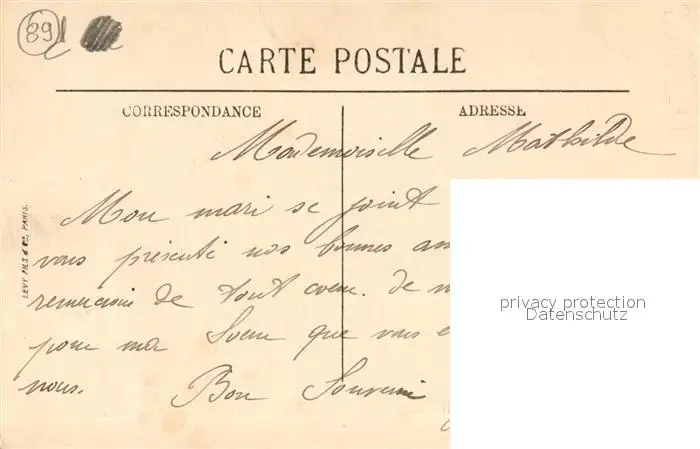 89
CARTE POSTALE
CORRESPONDANCE
ADRESSE
Mademoiselle Mathilde
Mon mari se joint
vous présenté nos bonnes am
remercions de tout coeur. de v
pour ma Soeur que vous e
nous. Bon Souvenir
LEVY FILS & Cie, PARIS.
privacy protection
Datenschutz